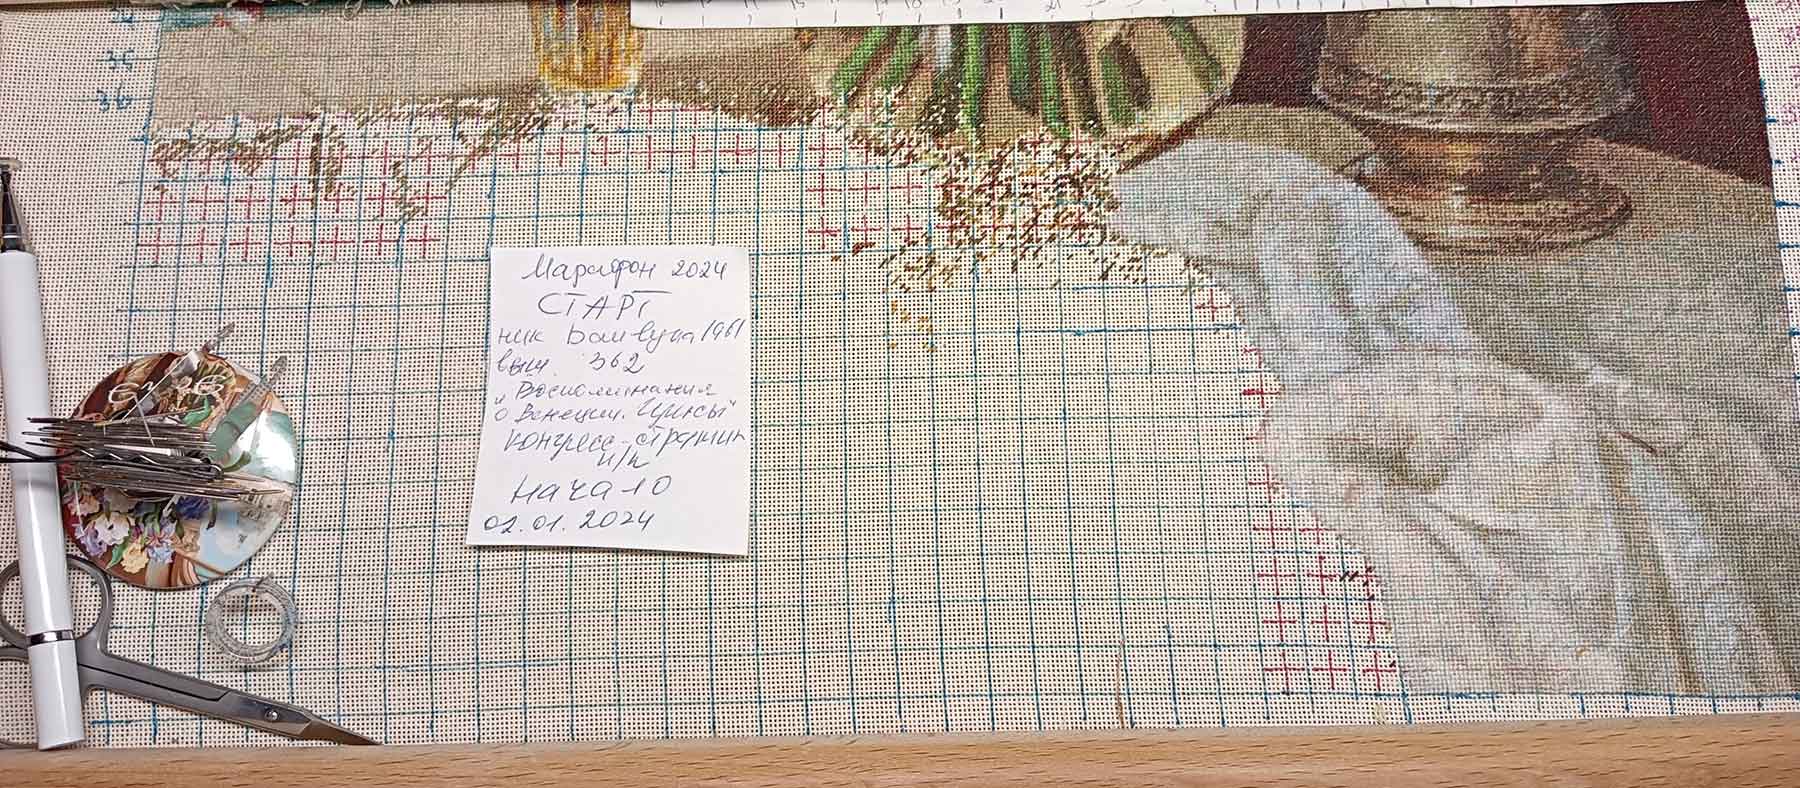 35
36
Марафон 2024
СТАРТ
ник 1961
362
"Воспоминания
о Венеции. Ирисы"
Конгресс-страмин
н/к
Начало
02.01.2024